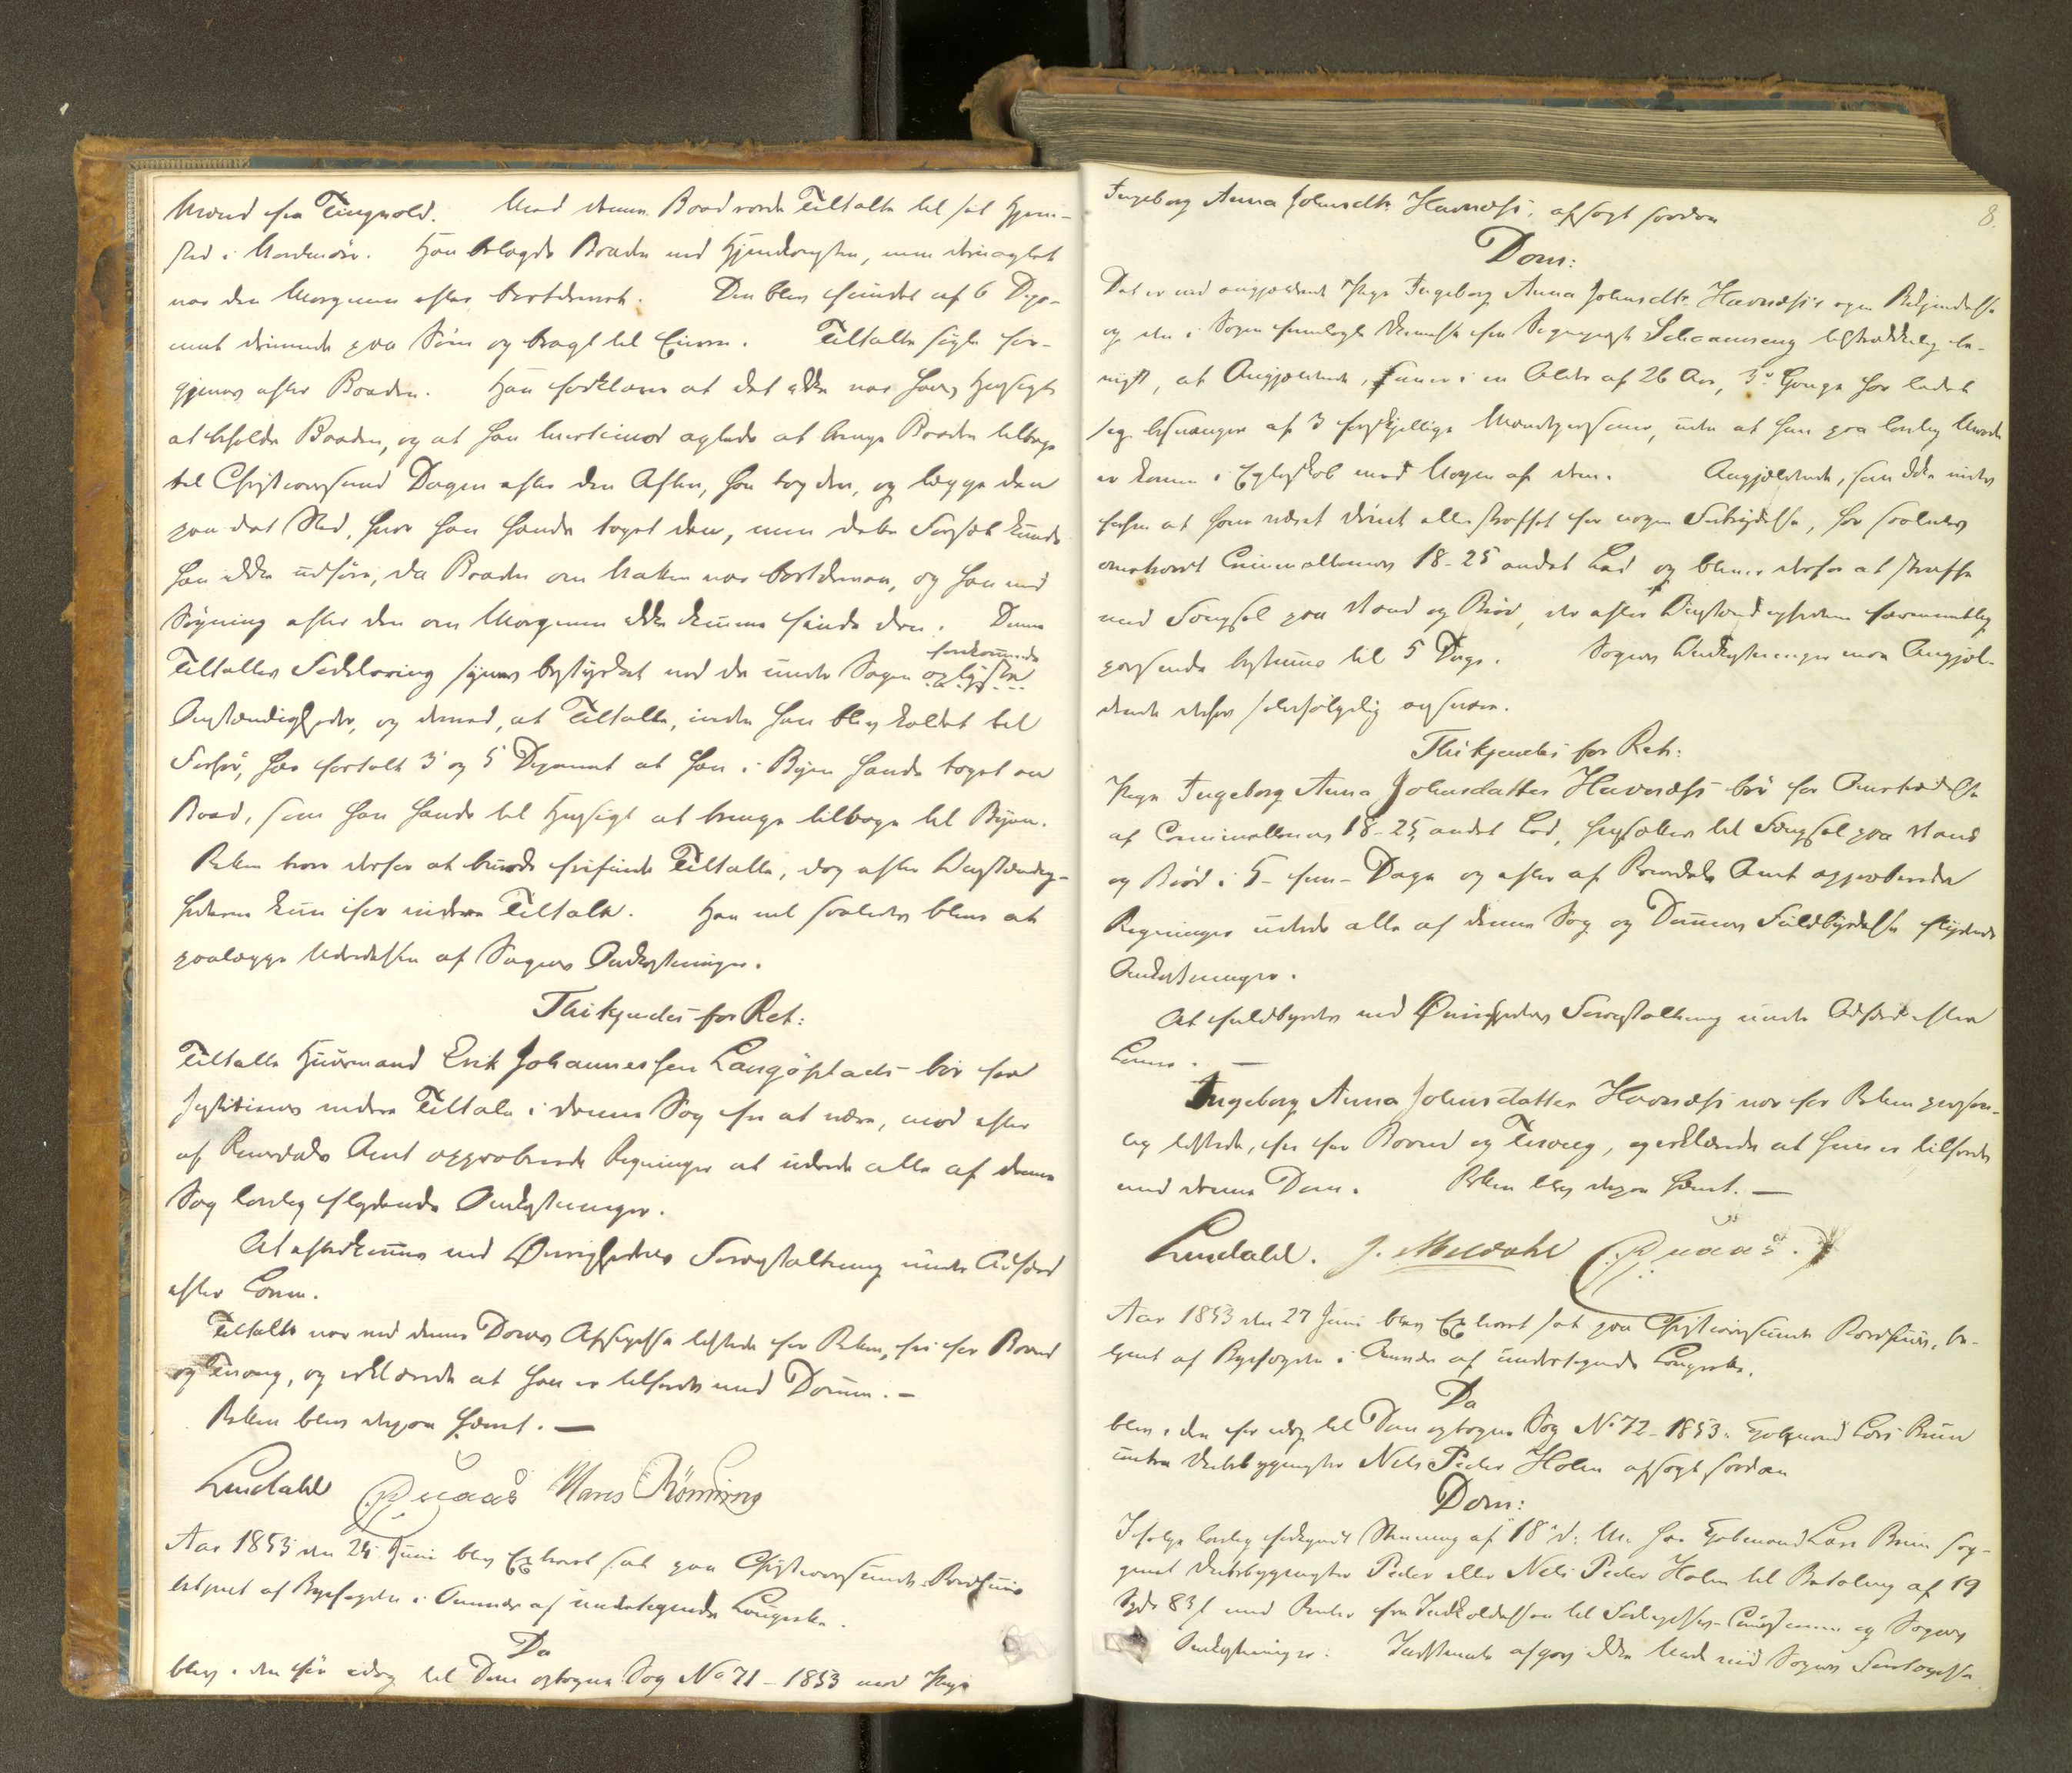 Mand fra Tingvold. Med denne Baad roede Tiltalte til sit Hjem-
sted i Nordmøre. Han belagde Baaden ved Hjemkomsten, men den
var den Morgenen efter bortdreven. Den blev fundet af 6 Depo-
nent drivende paa Søen og bragt til Byen. Tiltalte søgte for-
gjæves efter Baaden. Han forklarer at det ikke var hans Hensigt
at beholde Baaden, og at han tvertimod agtede at bringe Baaden tilbage
til Christianssund Dagen efter den Aften, han tog den, og lægge den
paa det Sted, hvor han havde taget den, men dette Forsæt kunde
han ikke udføre, da Baaden om Natten var bortdreven, og han ved
Søgning efter den om Morgenen ikke kunne finde den. Denne
Tiltaltes Forklaring synes bestyrket ved de under Sagen oplyste
forekomne
Omstændigheder, og derved, at Tiltalte, inden han blev kaldet til
Forhør, har fortalt 3 og 5 Deponent at han i Byen havde taget en
Baad, som han havde til Hensigt at bringe tilbage til Byen.
Retten troer derfor at burde frifinde Tiltalte, dog efter Omstændig-
hederne kun for videre Tiltale. Han vil saaledes blive at
paalægge Udredelsen af Sagens Omkostninger.
Thi kjendes for Ret:
Tiltalte Huusmand Erik Johannessen Langöplads bör for
Justitiens videre Tiltale i denne Sag fri at være, mod efter
af Romsdals Amt approberede Regninger at udrede alle af denne
Sag lovlig flydende Omkostninger.
At efterkommes ved Øvrighedens Foranstaltning under Adfærd
efter Loven.
Tiltalte var ved denne Doms Afsigelse tilstede for Retten, fri for Baand
og Tvang, og erklærede at han er tilfreds med Dommen. –
Retten blev derpaa hævet. —
Lindahl Quaas Hans Rönning
Aar 1853 den 24 Juni blev Extraret sat paa Christianssunds Raadhuus
betjent af Byfogden i Overvær af undertegnede Laugrette.
Da
blev i den før idag til Dom optagne Sag No 71 – 1853 mod Pige
8.
Ingeborg Anna Johnsdtr. Havnæss, afsagt saadan
Dom:
Det er ved angjældende Pige Ingeborg Anna Johnsdtr. Havnæss's egen Bekjendelse
og den i Sagen fremlagte Skrivelse fra Sognepræst Schvanseng tilstrækkelig be-
viist, at Angjældende, som er i en Alder af 26 Aar, 3de Gange har ladet
sig besvangre af 3 forskjellige Mandspersoner, uden at hun paa lovlig Maade
er kommen i Egteskab med Nogen af dem. Angjældende, som ikke vides
forhen at have været dømt eller straffet for nogen Forbrydelse, har saaledes
overtraadt Criminallovens 18–25 andet Led og bliver derfor at straffe
med Fængsel paa Vand og Brød, der efter Omstændighederne formeentlig
passende bestemmes til 5 Dage. Sagens Omkostninger maa Angjæl-
dende derhos selvfølgelig udrede.
Thi kjendes for Ret:
Pige Ingeborg Anna Johnsdatter Havnæss bör for Overtrædelse
af Criminallovens 18–25 andet Led, hensættes til Fængsel paa Vand
og Brød i 5 – fem – Dage og efter af Romsdals Amt approberede
Regninger udrede alle af denne Sag og Dommens Fuldbyrdelse flydende
Omkostninger.
At fuldbyrdes ved Øvrighedens Foranstaltning under Adfærd efter
Loven. —
Ingeborg Anna Johnsdatter Havnæss var for Retten person-
lig tilstede, fri for Baand og Tvang, og erklærede at hun er tilfreds
med denne Dom. Retten blev derpaa hævet. —
Lindahl. J. Meldahl Quaas.
Aar 1853 den 27 Juni blev Extraret sat paa Christianssunds Raadhuus, be-
tjent af Byfogden i Overvær af undertegnede Laugrette.
Da
blev i den før idag til Dom optagne Sag No 72 – 1853. Handelsmand Lars Bruun
contra Skibsbygmester Nels Peder Holm afsagt saadan
Dom:
Ifølge lovlig forkyndt Stævning af 18 d: M. har Handelsmand Lars Bruun sag-
søgt Skibsbygmester Peder eller Nels Peder Holm til Betaling af 19
Spd 83 s med Renter fra Indkaldelsen til Forligelses-Commissionen og Sagens
Omkostninger. Indstevnte afgav ikke Møde ved Sagens Foretagelse